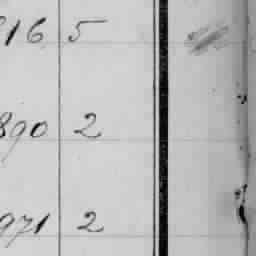 816 5
890 2
971 2